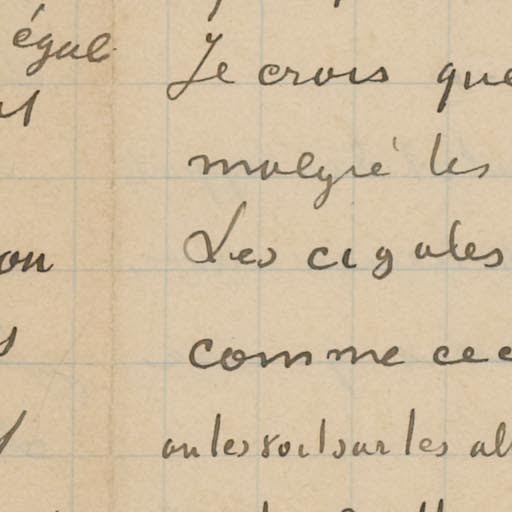 égal
Je crois que
malgré les
on
Les cigales
comme cec
on les voit sur les al